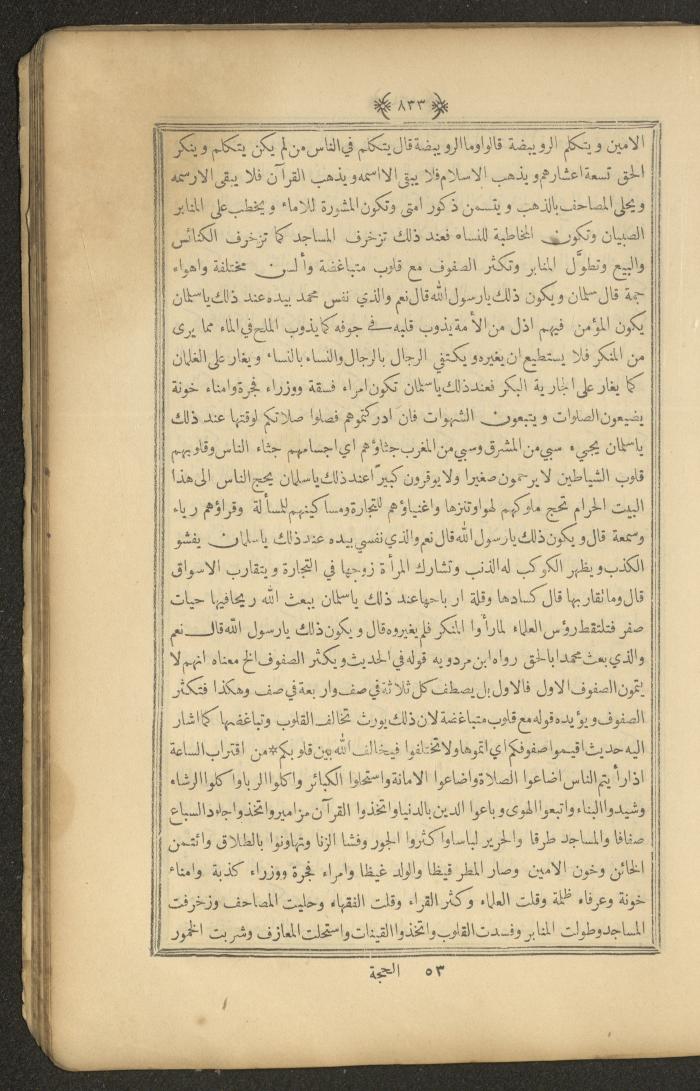 ٨٣٣
الامين ويتكلم الرويبضة قالوا وما الرويبضة قال يتكلم في الناس من لم يكن يتكلم وينكر
الحق تسعة اعشارهم ويذهب الاسلام فلا يبقى الا اسمه ويذهب القرآن فلا يبقى الا رسمه
ويحلى المصاحف بالذهب ويتسمن ذكور امتى وتكون المشورة للاماء ويخطب على المنابر
الصبيان وتكون المخاطبة للنساء فعند ذلك تزخرف المساجد كما تزخرف الكنائس
والبيع وتطوَّل المنابر وتكثر الصفوف مع قلوب متباغضة وألسن مختلفة واهواء
جمة قال سلمان ويكون ذلك يارسول الله قال نعم والذي نفس محمد بيده عند ذلك ياسلمان
يكون المؤمن فيهم اذل من الأمة يذوب قلبه في جوفه كما يذوب الملح في الماء مما يرى
من المنكر فلا يستطيع ان يغيره ويكتفي الرجال بالرجال والنساء بالنساء ويغار على الغلمان
كما يغار على الجارية البكر فعند ذلك ياسلمان تكون امراء فسقة ووزراء فجرة وامناء خونة
يضيعون الصلوات ويتبعون الشهوات فان ادركتموهم فصلوا صلاتكم لوقتها عند ذلك
ياسلمان يجيء سبي من المشرق وسبي من المغرب جثاؤهم اي اجسامهم جثاء الناس وقلوبهم
قلوب الشياطين لا يرحمون صغيرا ولا يوقرون كبيرًا عند ذلك ياسلمان يحج الناس الى هذا
البيت الحرام تحج ملوكهم لهوا وتنزها واغنياؤهم للتجارة ومساكينهم للمسألة وقراؤهم رياء
وسمعة قال ويكون ذلك يارسول الله قال نعم والذي نفسي بيده عند ذلك ياسلمان يفشو
الكذب ويظهر الكوكب له الذنب وتشارك المرأة زوجها في التجارة ويتقارب الاسواق
قال وما تقاربها قال كسادها وقلة ارباحها عند ذلك ياسلمان يبعث الله ريحا فيها حيات
صفر فتلتقط رؤس العلماء لما رأوا المنكر فلم يغيروه قال ويكون ذلك يارسول الله قال نعم
والذي بعث محمدا بالحق رواه ابن مردويه قوله في الحديث ويكثر الصفوف الخ معناه انهم لا
يتمون الصفوف الاول فالاول بل يصطف كل ثلاثة في صف واربعة في صف وهكذا فتكثر
الصفوف ويؤيده قوله مع قلوب متباغضة لان ذلك يورث تخالف القلوب وتباغضها كما اشار
اليه حديث اقيموا صفوفكم اي اتموها ولا تختلفوا فيخالف الله بين قلوبكم * من اقتراب الساعة
اذا رأيتم الناس اضاعوا الصلاة واضاعوا الامانة واستحلوا الكبائر واكلوا الربا واكلوا الرشاء
وشيدوا البناء واتبعوا الهوى وباعوا الدين بالدنيا واتخذوا القرآن مزامير واتخذوا جلود السباع
صفافا والمساجد طرقا والحرير لباسا واكثروا الجور وفشا الزنا وتهاونوا بالطلاق وائتمن
الخائن وخون الامين وصار المطر قيظا والولد غيظا وامراء فجرة ووزراء كذبة وامناء
خونة وعرفاء ظلمة وقلت العلماء وكثر القراء وقلت الفقهاء وحليت المصاحف وزخرفت
المساجد وطولت المنابر وفسدت القلوب واتخذوا القينات واستحلت المعازف وشربت الخمور
٥٣ الحجة